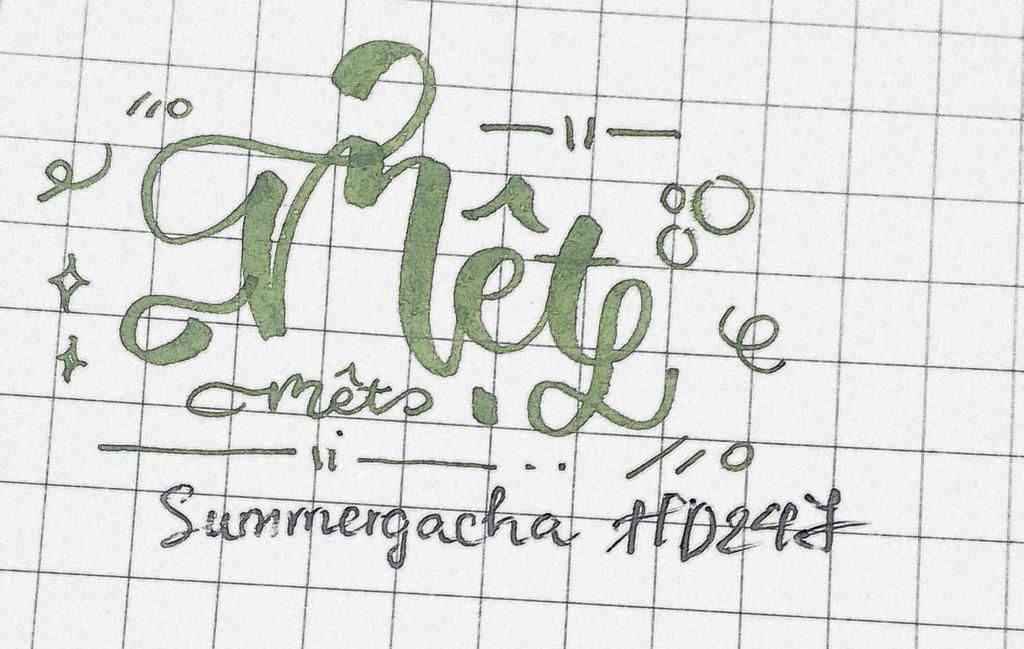 Mệt
mệts
Summergacha HD247